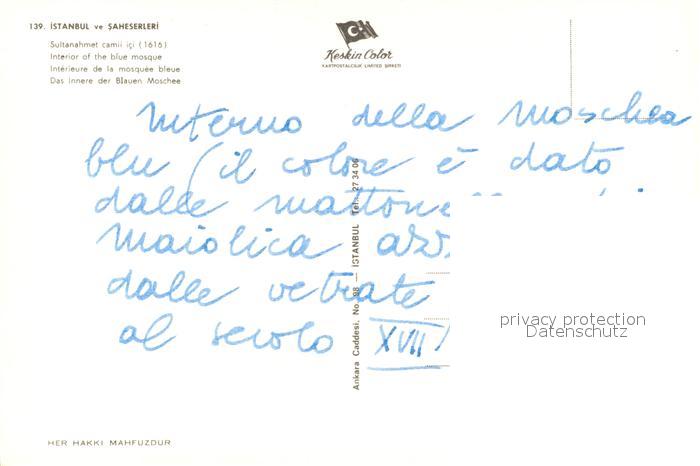 139. İSTANBUL ve ŞAHESERLERİ
Sultanahmet camii içi (1616)
Interior of the blue mosque
Intérieure de la mosquée bleue
Das Innere der Blauen Moschee
Keskin Color
KARTPOSTALCILIK LIMITED ŞİRKETİ
Interno della Moschea
blu (il colore è dato
dalle
maiolica
dalle vetrate
al secolo XVII)
Ankara Caddesi, No. 98 — İSTANBUL Tel.: 27 34 06
privacy protection
Datenschutz
HER HAKKI MAHFUZDUR